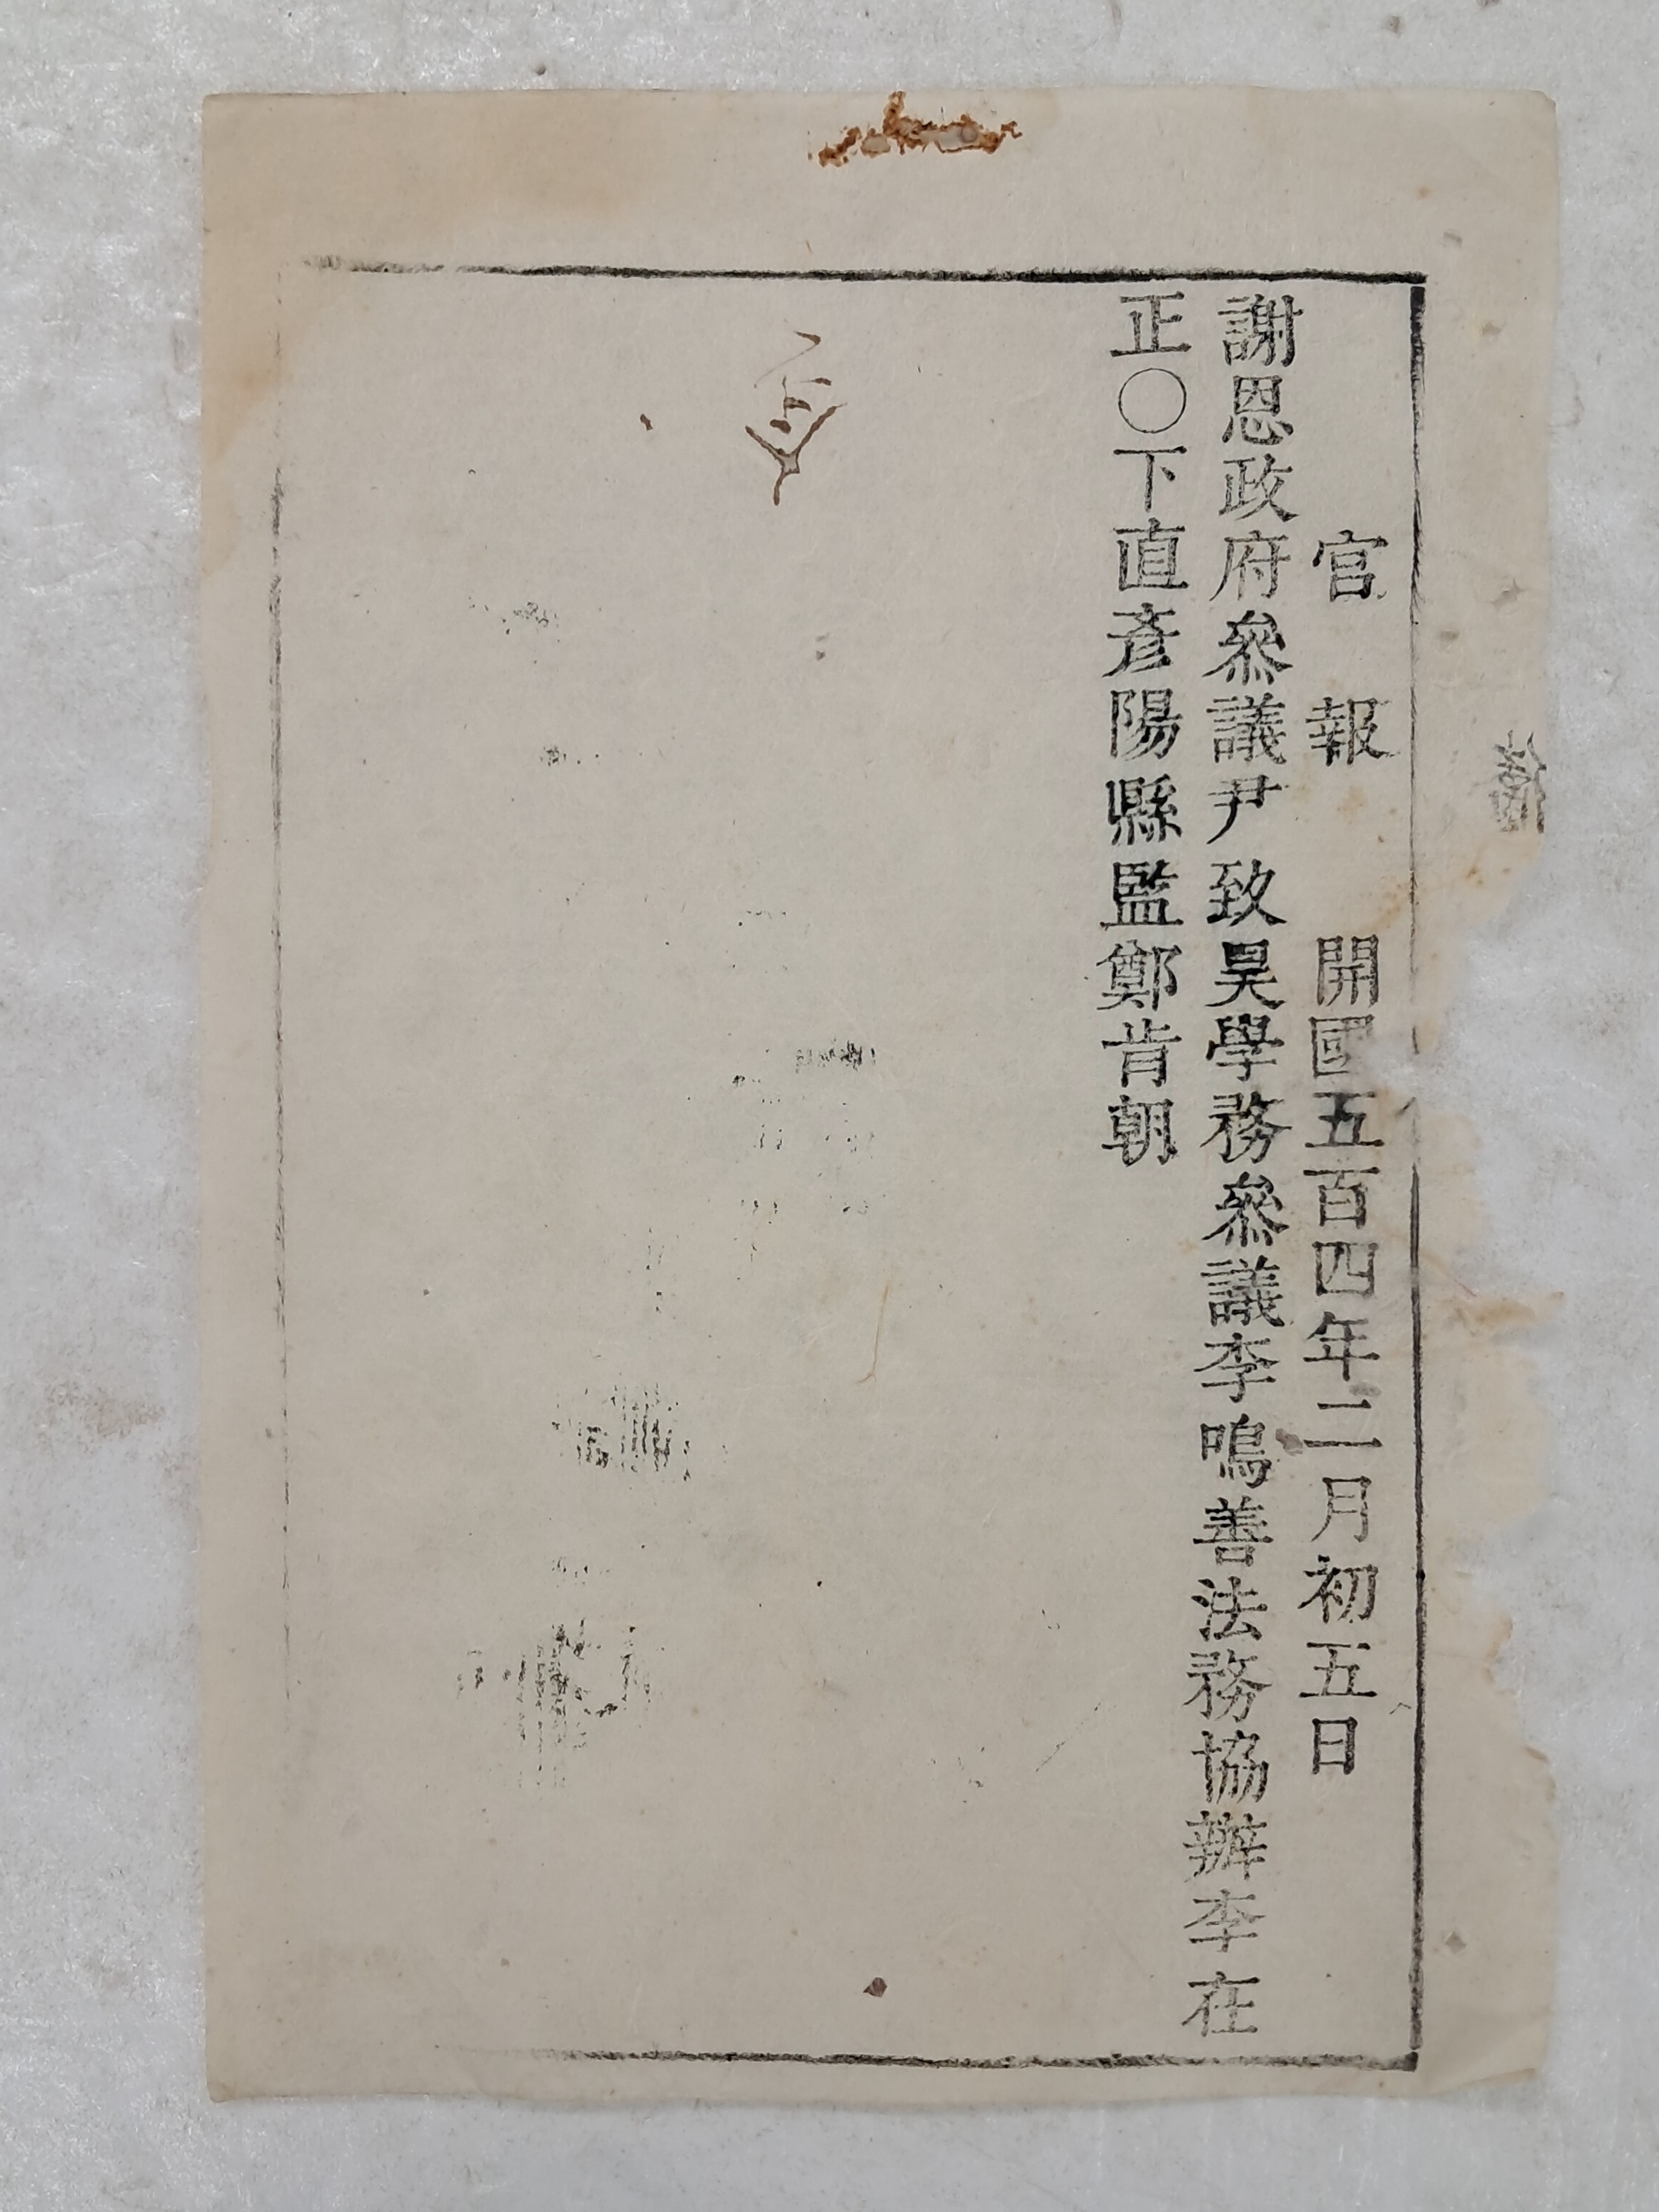 官報 開國五百四年二月初五日
謝恩政府叅議尹致昊學務叅議李鳴善法務協辦李在
正〇下直彥陽縣監鄭肯朝